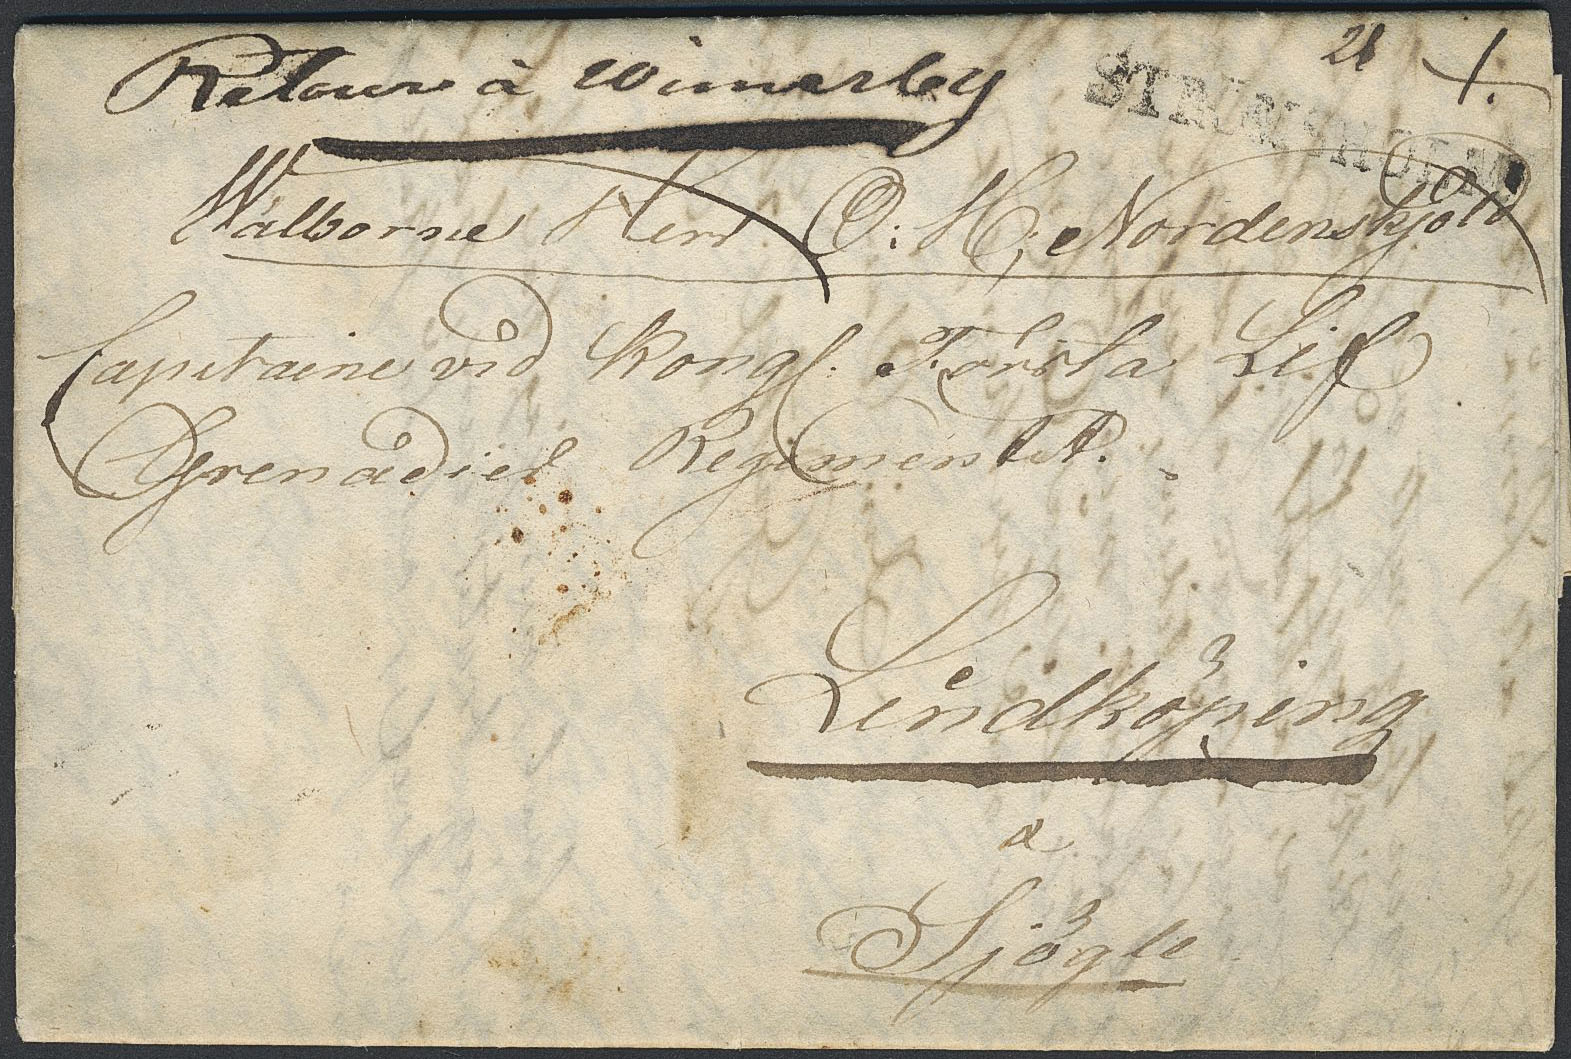 Retour à Wimerby
21
STRÖMSHOLM
Wälborne Herr O: H: Nordenskjöld
Capitaine vid Kongl. Första Lif
Grenadier Regimentet.
Lindköping
a
Sjögle